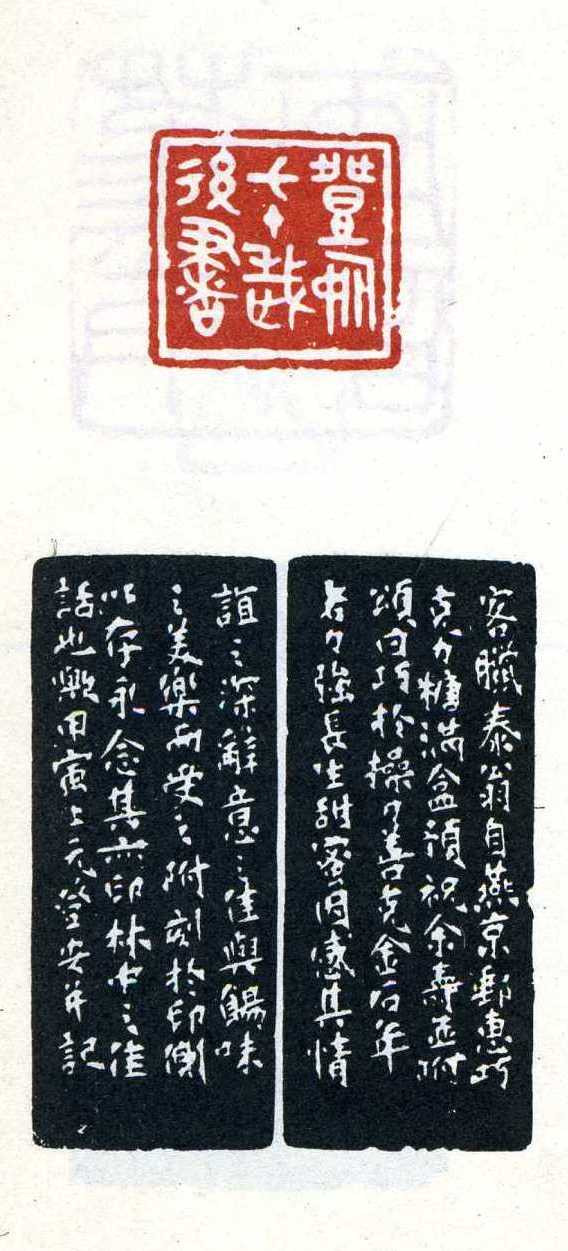 登
七十歲
後書
客臘泰翁自燕京郵惠巧
克力糖滿盒預祝余壽並附
頌曰巧於操刀善克金石年
老力強長生甜蜜因感其情
誼之深辭意之佳與餳味
之美樂而受之附刻於印側
以存永念其亦印林中之佳
話也歟甲寅上元登安并記